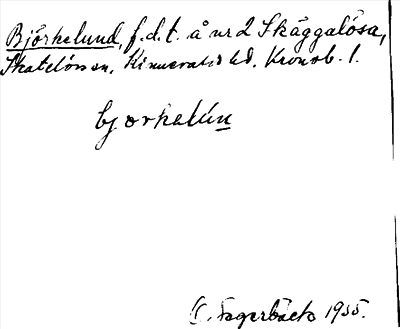 Björkelund, f.d.t. å nr 2 Skäggalösa,
Skatelövs sn. Kinnevalds hd. Kronob. l.
bjørkəlún
C. Fagerbäck 1935.